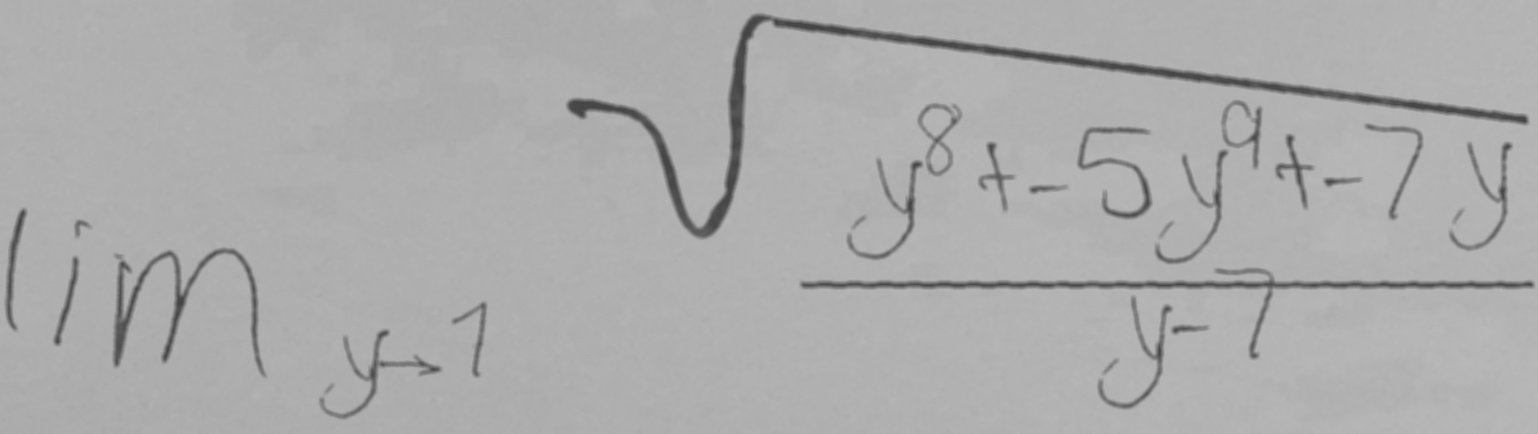 \lim_{y \to 1} \sqrt{\frac{y^8+-5y^9+-7y}{y-7}}